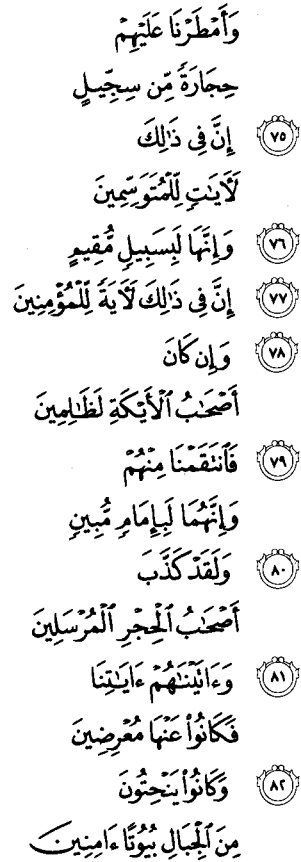 وَأَمْطَرْنَا عَلَيْهِمْ
حِجَارَةً مِّن سِجِّيلٍ
٧٥ إِنَّ فِى ذَٰلِكَ
لَءَايَٰتٍ لِّلْمُتَوَسِّمِينَ
٧٦ وَإِنَّهَا لَبِسَبِيلٍ مُّقِيمٍ
٧٧ إِنَّ فِى ذَٰلِكَ لَءَايَةً لِّلْمُؤْمِنِينَ
٧٨ وَإِن كَانَ
أَصْحَٰبُ ٱلْأَيْكَةِ لَظَٰلِمِينَ
٧٩ فَٱنتَقَمْنَا مِنْهُمْ
وَإِنَّهُمَا لَبِإِمَامٍ مُّبِينٍ
٨٠ وَلَقَدْ كَذَّبَ
أَصْحَٰبُ ٱلْحِجْرِ ٱلْمُرْسَلِينَ
٨١ وَءَاتَيْنَٰهُمْ ءَايَٰتِنَا
فَكَانُوا۟ عَنْهَا مُعْرِضِينَ
٨٢ وَكَانُوا۟ يَنْحِتُونَ
مِنَ ٱلْجِبَالِ بُيُوتًا ءَامِنِينَ